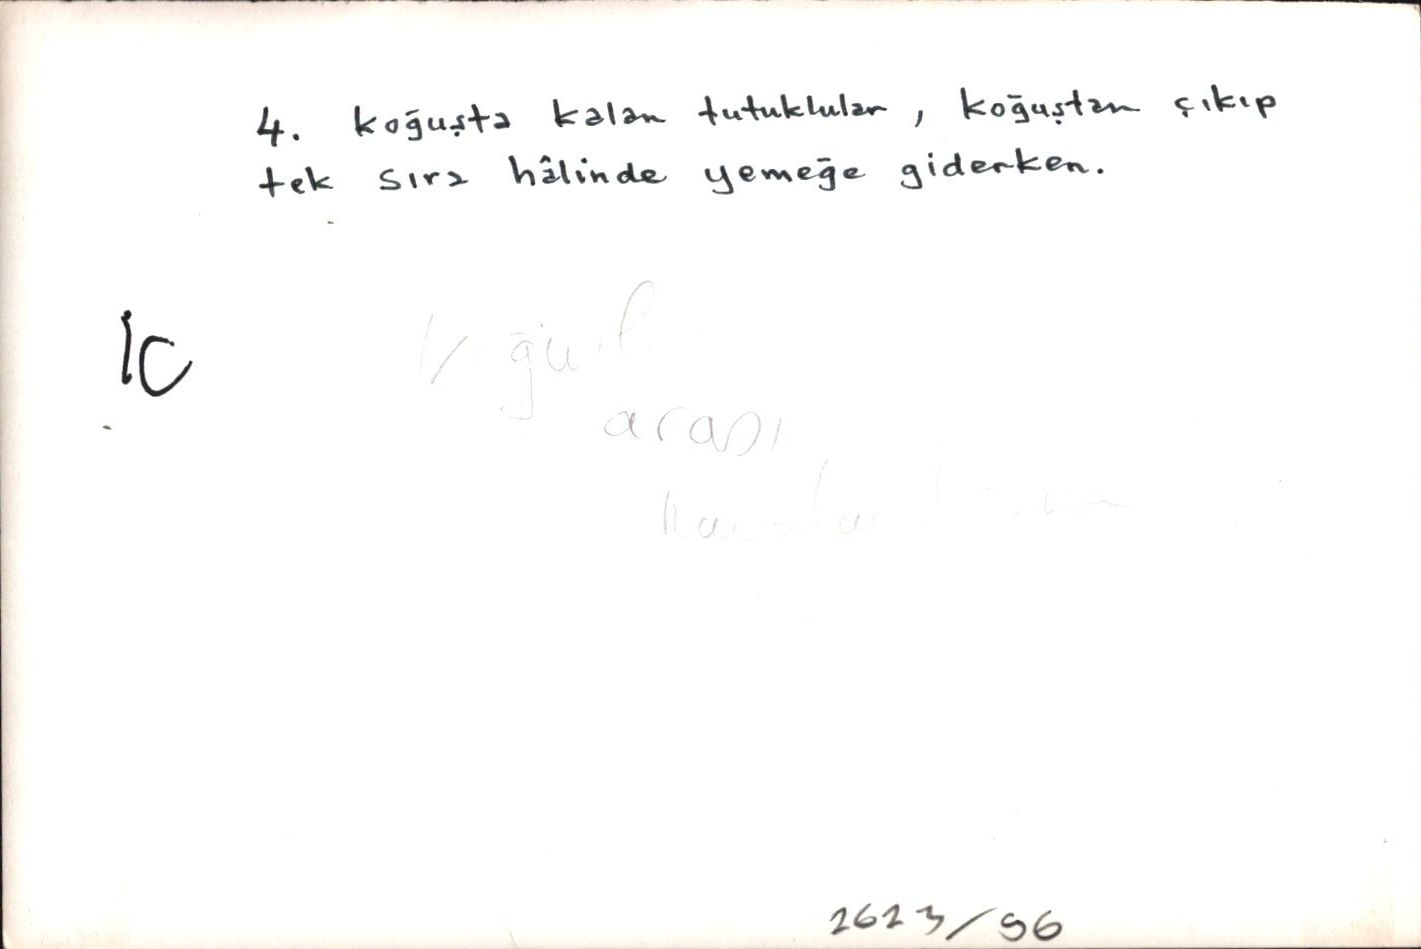 4. koğuşta kalan tutuklular, koğuştan çıkıp
tek sıra hâlinde yemeğe giderken.
arası
2623/96